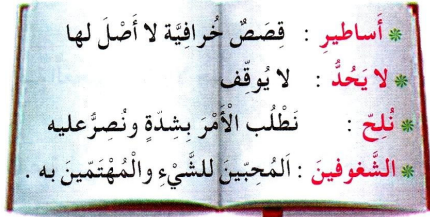 * أَساطيرِ : قِصَصٌ خُرافِيَّة لا أَصْلَ لها
* لا يَحُدُّ : لا يُوقِّف
* نُلِحّ : نَطْلُب الْأَمْرَ بِشِدّةٍ ونُصِرُّ عليه
* الشَّغوفينَ : اَلمُحِبّينَ للشَّيْءِ والْمُهْتَمّينَ به .